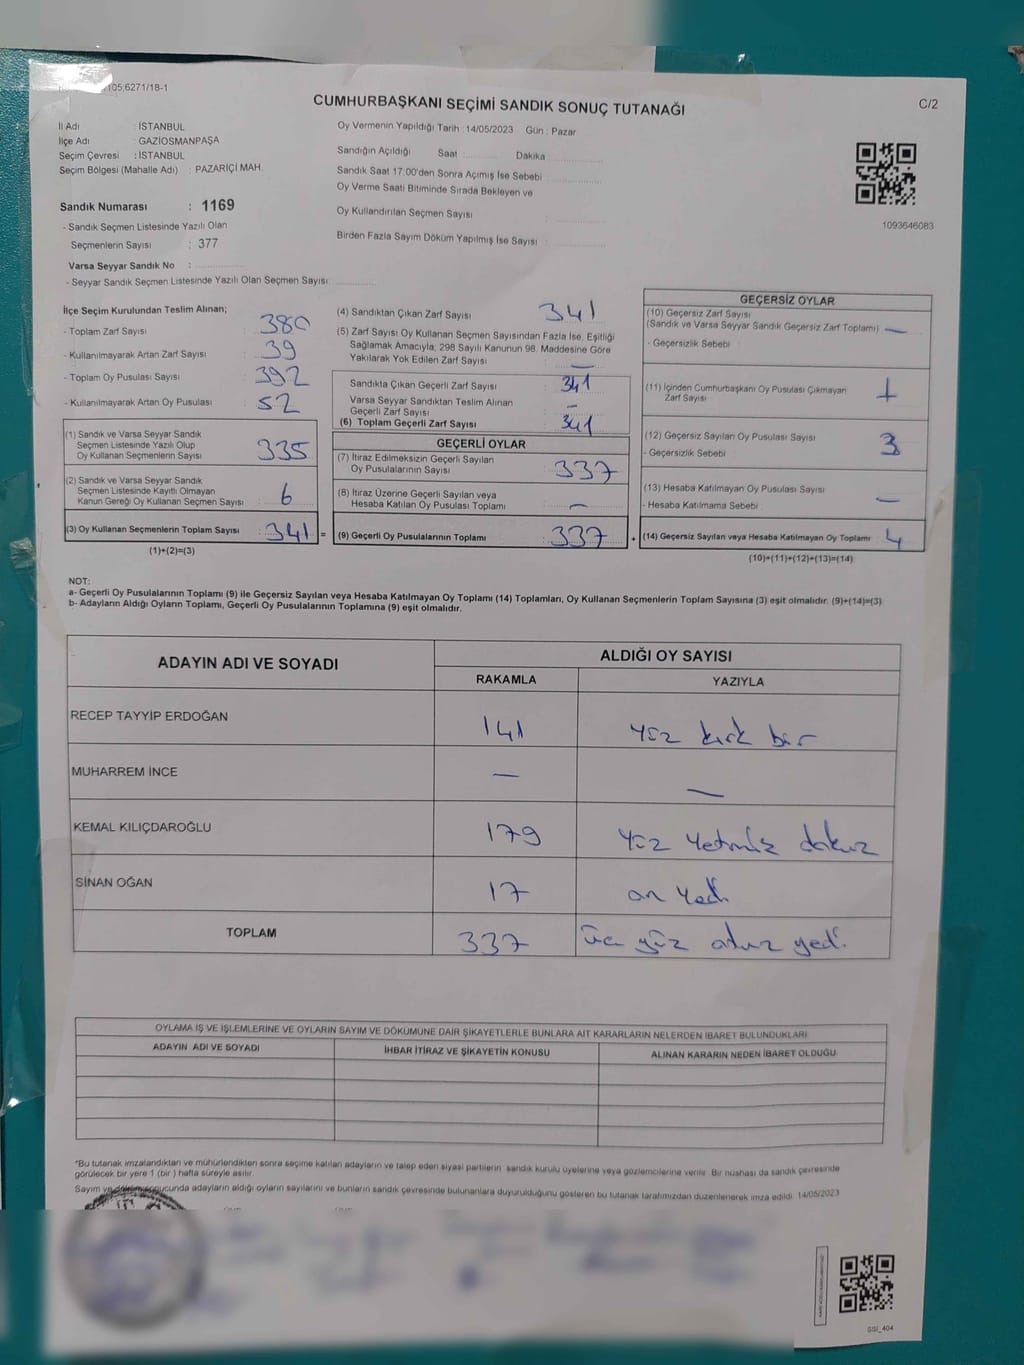 105;6271/18-1
CUMHURBAŞKANI SEÇİMİ SANDIK SONUÇ TUTANAĞI
C/2
İl Adı : İSTANBUL
İlçe Adı : GAZİOSMANPAŞA
Seçim Çevresi : İSTANBUL
Seçim Bölgesi (Mahalle Adı) : PAZARİÇİ MAH.
Sandık Numarası : 1169
- Sandık Seçmen Listesinde Yazılı Olan
Seçmenlerin Sayısı : 377
Varsa Seyyar Sandık No :
- Seyyar Sandık Seçmen Listesinde Yazılı Olan Seçmen Sayısı:
Oy Vermenin Yapıldığı Tarih :14/05/2023 Gün : Pazar
Sandığın Açıldığı Saat: Dakika:
Sandık Saat 17:00'den Sonra Açımış İse Sebebi :
Oy Verme Saati Bitiminde Sırada Bekleyen ve
Oy Kullandırılan Seçmen Sayısı :
Birden Fazla Sayım Döküm Yapılmış İse Sayısı :
1093646083
İlçe Seçim Kurulundan Teslim Alınan;
- Toplam Zarf Sayısı : 380
- Kullanılmayarak Artan Zarf Sayısı : 39
- Toplam Oy Pusulası Sayısı : 392
- Kullanılmayarak Artan Oy Pusulası : 52
(1) Sandık ve Varsa Seyyar Sandık
Seçmen Listesinde Yazılı Olup
Oy Kullanan Seçmenlerin Sayısı : 335
(2) Sandık ve Varsa Seyyar Sandık
Seçmen Listesinde Kayıtlı Olmayan
Kanun Gereği Oy Kullanan Seçmen Sayısı : 6
(3) Oy Kullanan Seçmenlerin Toplam Sayısı : 341 =
(1)+(2)=(3)
(4) Sandıktan Çıkan Zarf Sayısı : 341
(5) Zarf Sayısı Oy Kullanan Seçmen Sayısından Fazla İse, Eşitliği
Sağlamak Amacıyla, 298 Sayılı Kanunun 98. Maddesine Göre
Yakılarak Yok Edilen Zarf Sayısı : —
Sandıkta Çıkan Geçerli Zarf Sayısı : 341
Varsa Seyyar Sandıktan Teslim Alınan
Geçerli Zarf Sayısı : —
(6) Toplam Geçerli Zarf Sayısı : 341
GEÇERLİ OYLAR
(7) İtiraz Edilmeksizin Geçerli Sayılan
Oy Pusulalarının Sayısı : 337
(8) İtiraz Üzerine Geçerli Sayılan veya
Hesaba Katılan Oy Pusulası Toplamı : —
(9) Geçerli Oy Pusulalarının Toplamı : 337 +
GEÇERSİZ OYLAR
(10) Geçersiz Zarf Sayısı
(Sandık ve Varsa Seyyar Sandık Geçersiz Zarf Toplamı) : —
- Geçersizlik Sebebi :
(11) İçinden Cumhurbaşkanı Oy Pusulası Çıkmayan
Zarf Sayısı : 1
(12) Geçersiz Sayılan Oy Pusulası Sayısı : 3
- Geçersizlik Sebebi :
(13) Hesaba Katılmayan Oy Pusulası Sayısı : —
- Hesaba Katılmama Sebebi :
(14) Geçersiz Sayılan veya Hesaba Katılmayan Oy Toplamı : 4
(10)+(11)+(12)+(13)=(14)
NOT:
a- Geçerli Oy Pusulalarının Toplamı (9) ile Geçersiz Sayılan veya Hesaba Katılmayan Oy Toplamı (14) Toplamları, Oy Kullanan Seçmenlerin Toplam Sayısına (3) eşit olmalıdır. (9)+(14)=(3)
b- Adayların Aldığı Oyların Toplamı, Geçerli Oy Pusulalarının Toplamına (9) eşit olmalıdır.
ADAYIN ADI VE SOYADI ALDIĞI OY SAYISI
RAKAMLA YAZIYLA
RECEP TAYYİP ERDOĞAN 141 yüz kırk bir
MUHARREM İNCE — —
KEMAL KILIÇDAROĞLU 179 yüz yetmiş dokuz
SİNAN OĞAN 17 on yedi
TOPLAM 337 üç yüz otuz yedi
OYLAMA İŞ VE İŞLEMLERİNE VE OYLARIN SAYIM VE DÖKÜMÜNE DAİR ŞİKAYETLERLE BUNLARA AİT KARARLARIN NELERDEN İBARET BULUNDUKLARI
ADAYIN ADI VE SOYADI İHBAR İTİRAZ VE ŞİKAYETİN KONUSU ALINAN KARARIN NEDEN İBARET OLDUĞU
*Bu tutanak imzalandıktan ve mühürlendikten sonra seçime katılan adayların ve talep eden siyasi partilerin sandık kurulu üyelerine veya gözlemcilerine verilir. Bir nüshası da sandık çevresinde
görülecek bir yere 1 (bir ) hafta süreyle asılır.
Sayım ve döküm sonucunda adayların aldığı oyların sayılarını ve bunların sandık çevresinde bulunanlara duyurulduğunu gösteren bu tutanak tarafımızdan düzenlenerek imza edildi. 14/05/2023
SSİ_404